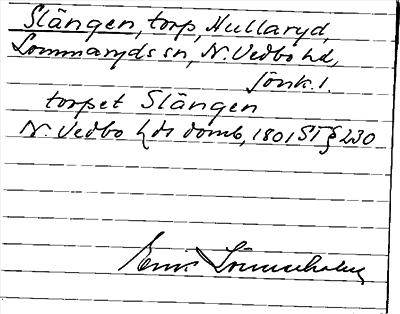 Slängen, torp, Hullaryd,
Lommaryds sn, N. Vedbo hd,
Jönk. l.
torpet Slängen
N. Vedbo hds domb, 1801 ST § 230